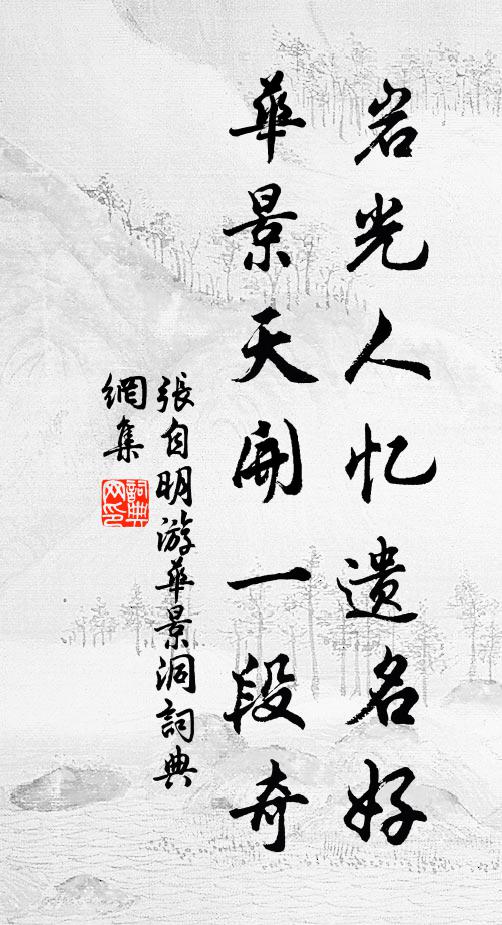 岩光人忆遗名好
華景天開一段奇
張自明游華景洞詞典
網集
詞典
网印